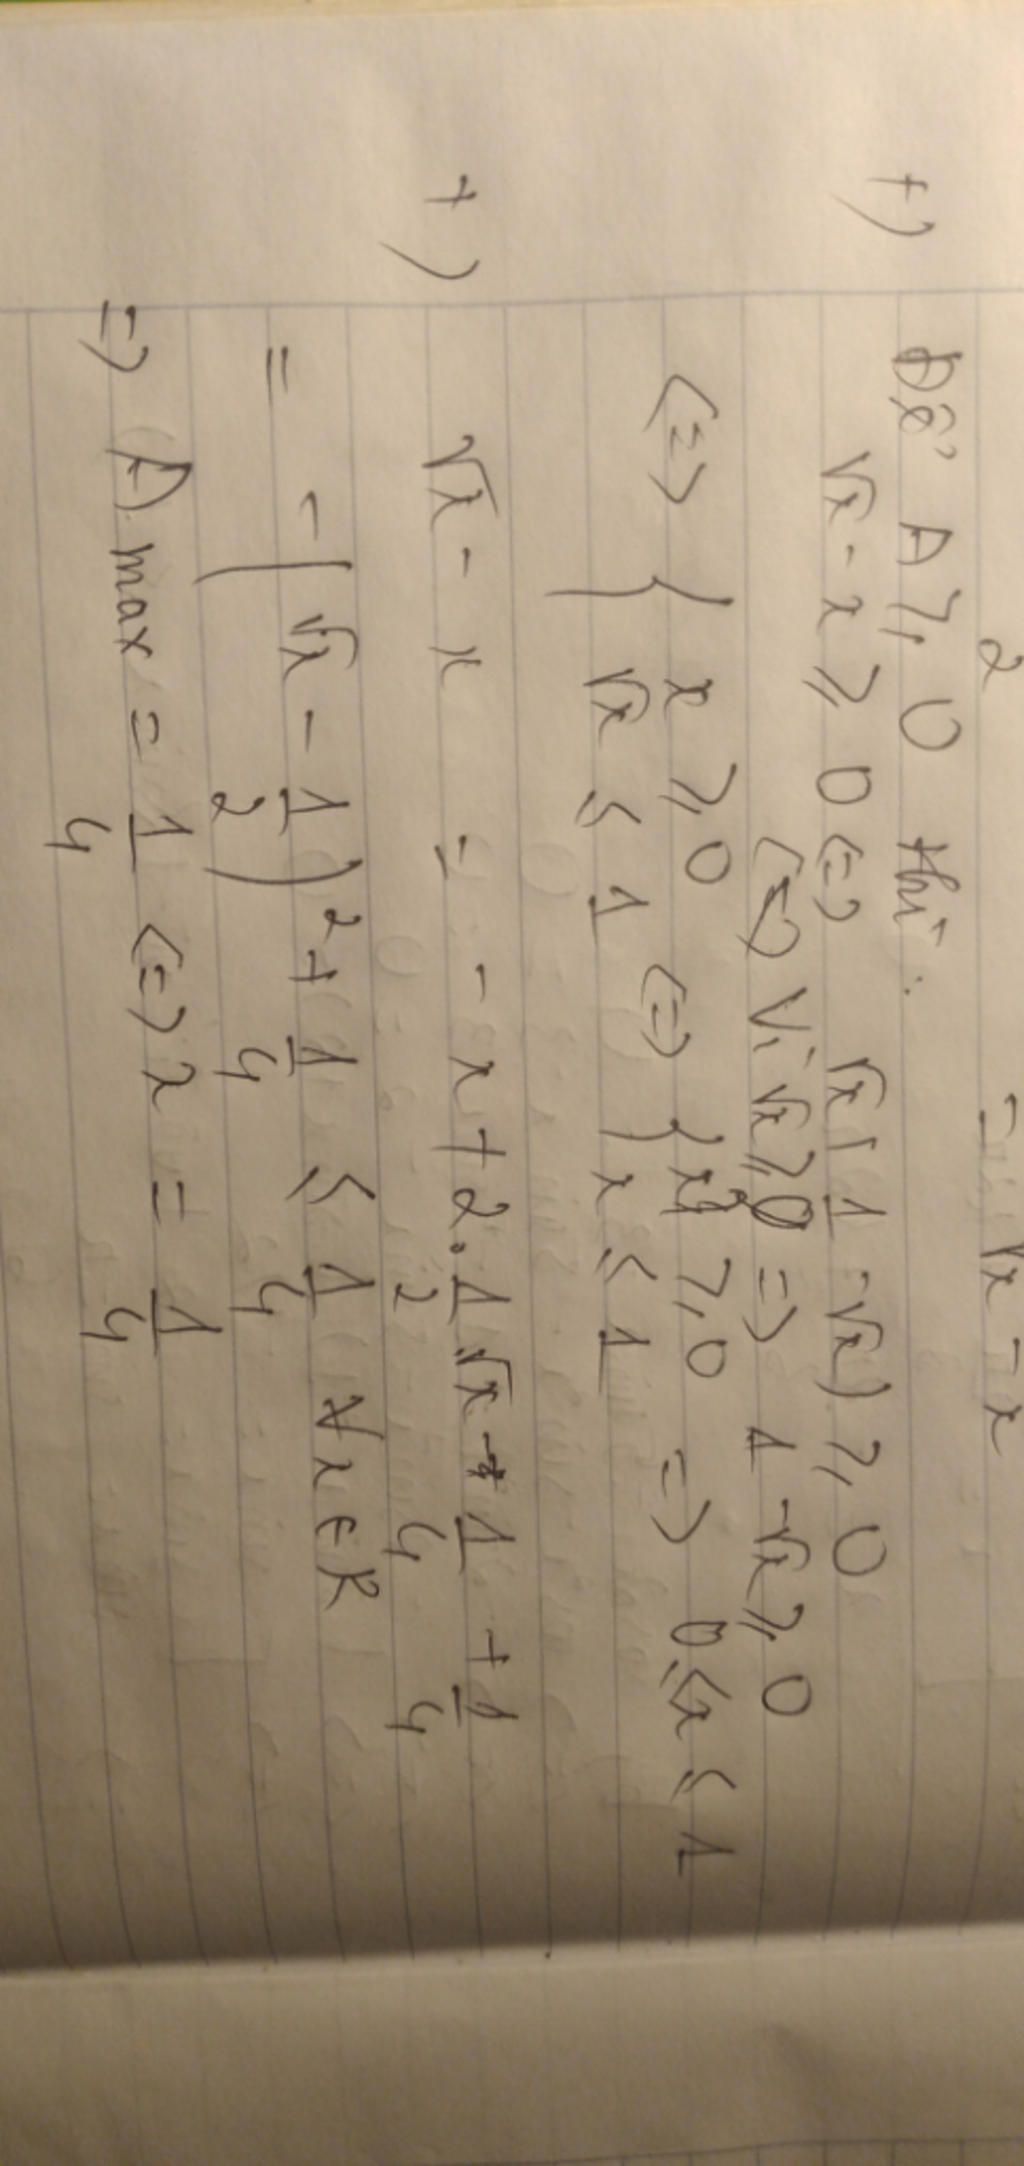 2 = √x - x
+) Để A ≥ 0 thì:
√x - x ≥ 0 <=> √x(1 - √x) ≥ 0
<=> Vì √x ≥ 0 => 1 - √x ≥ 0
<=> { x ≥ 0 <=> { x ≥ 0 => 0 ≤ x ≤ 1
√x ≤ 1 x ≤ 1
+) √x - x = - x + 2.1/2.√x - 1/4 + 1/4
= -(√x - 1/2)² + 1/4 ≤ 1/4 ∀x ∈ R
=> A max = 1/4 <=> x = 1/4